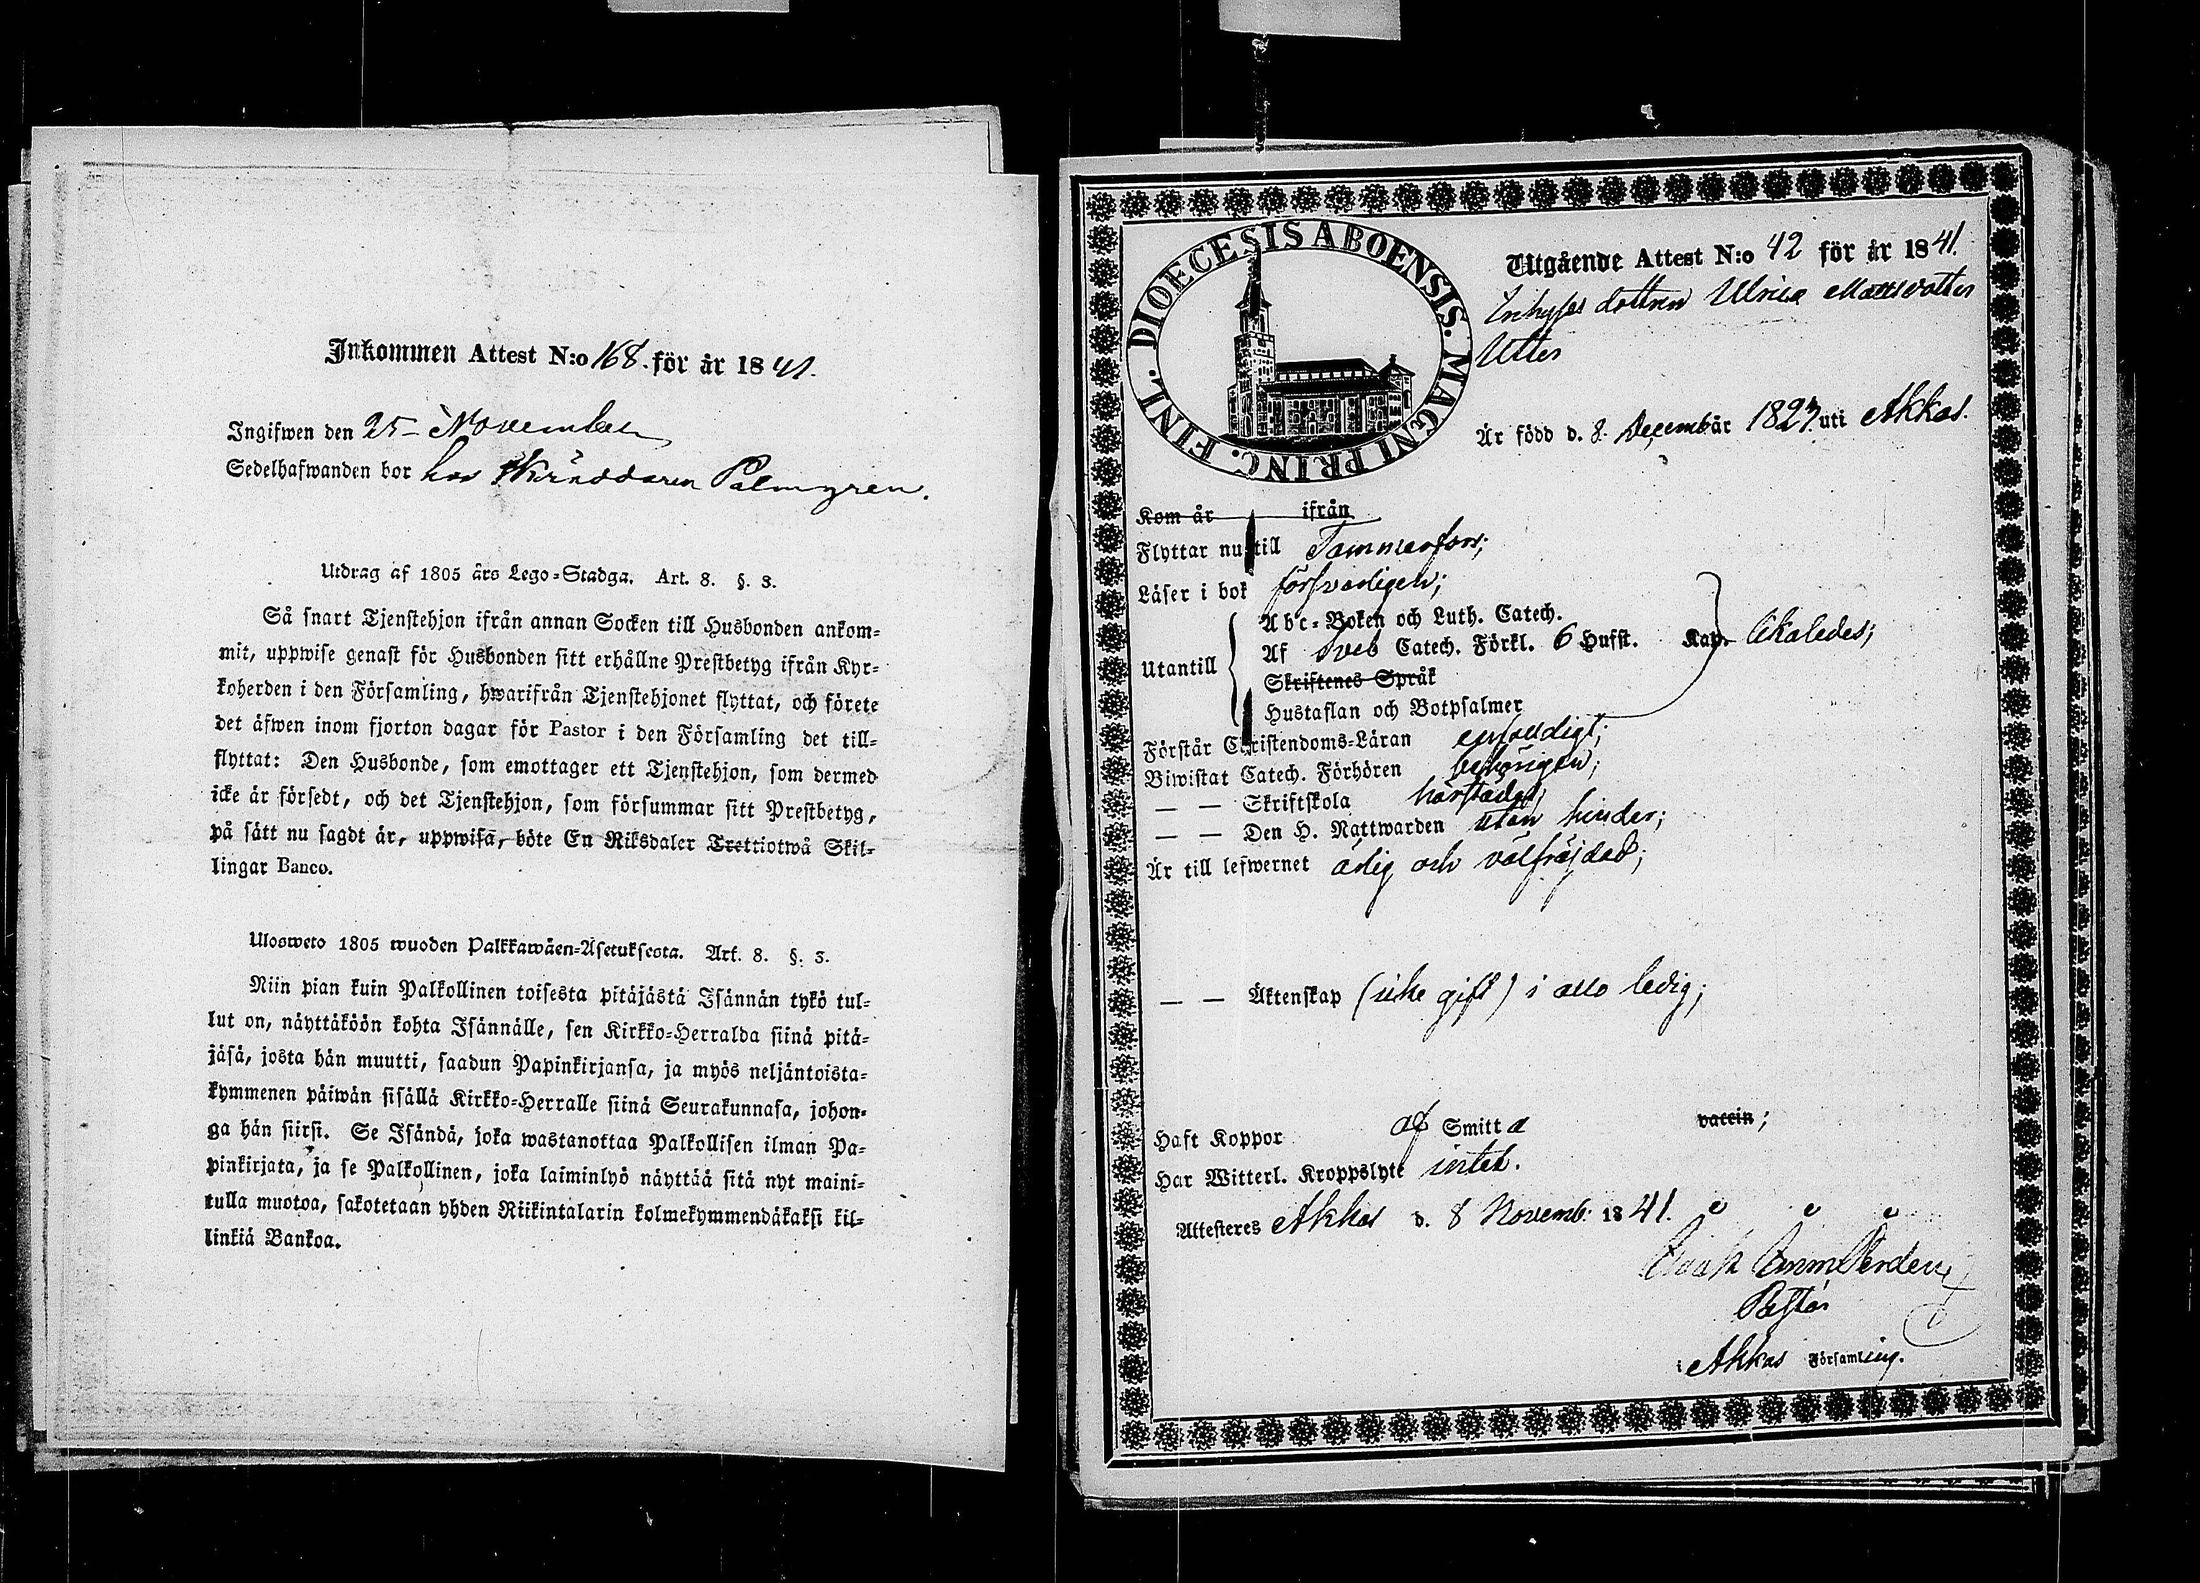 Inkommen Attest N:o 168. för år 1841.
Ingifwen den 25 November
Sedelhafwanden bor hos Skräddaren Palmgren.
Utdrag af 1805 års Lego-Stadga. Art. 8. §. 3.
Så snart Tjenstehjon ifrån annan Socken till Husbonden ankom-
mit, uppwise genast för Husbonden sitt erhållne Prestbetyg ifrån Kyr-
koherden i den Församling, hwarifrån Tjenstehjonet flyttat, och förete
det äfwen inom fjorton dagar för Pastor i den Församling det till-
flyttat: Den Husbonde, som emottager ett Tjenstehjon, som dermed
icke är försedt, och det Tjenstehjon, som försummar sitt Prestbetyg,
på sätt nu sagdt är, uppwisa, böte En Riksdaler Trettiotwå Skil-
lingar Banco.
Ulosweto 1805 wuoden Palkkawäen-Asetuksesta. Art. 8. §. 3.
Niin pian kuin Palkollinen toisesta pitäjästä Isännän tykö tul-
lut on, näyttäköön kohta Isännälle, sen Kirkko-Herralda siinä pitä-
jäsä, josta hän muutti, saadun Papinkirjansa, ja myös neljäntoista-
kymmenen päiwän sisällä Kirkko-Herralle siinä Seurakunnasa, johon-
ga hän siirsi. Se Isändä, joka wastanottaa Palkollisen ilman Pa-
pinkirjata, ja se Palkollinen, joka laiminlyö näyttää sitä nyt maini-
tulla muotoa, sakotetaan yhden Riikintalarin kolmekymmendäkaksi kil-
linkiä Bankoa.
FINL. DIOECESIS ABOENSIS. MAGNI PRINC.
Utgående Attest N:o 42 för år 1841.
Inhyses dottren Ulrica Mattsdotter
Utter
Är född d. 8. Decembär 1823 uti Akkas.
Kom år ifrån
Flyttar nu till Tammerfors;
Läser i bok försvarligen;
Abc-Boken och Luth. Catech.
Utantill Af Sveb Catech. Förkl. 6 Hufst. Kap. likaledes;
Skriftenes Språk
Hustaflan och Botpsalmer
Förstår Christendoms-Läran enfaldigt;
Biwistat Catech. Förhören behörigen;
— — Skriftskola härstädes;
— — Den H. Nattwarden utan hinder;
Är till lefwernet ärlig och välfräjdad;
— — Äktenskap (icke gift) i allo ledig;
Haft Koppor af Smitta vaccin;
Har Witterl. Kroppslyte intet.
Attesteres Akkas d. 8 Novemb. 1841.
Pastor
i Akkas Församling.